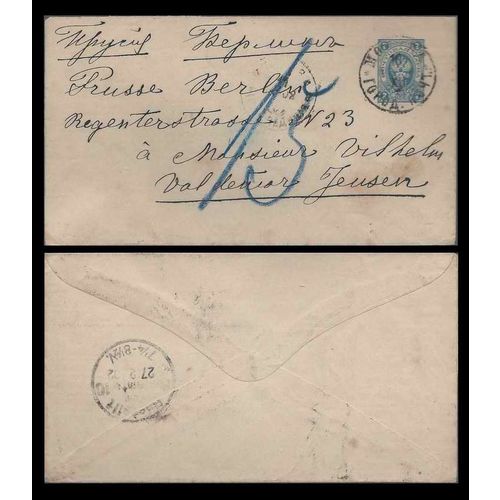 Прусiя Берлинъ
Prusse Berlin
Regenterstrasse N 23
à Monsieur Vilhelm
Valdemar Jensen
15
7¼-8½N
27